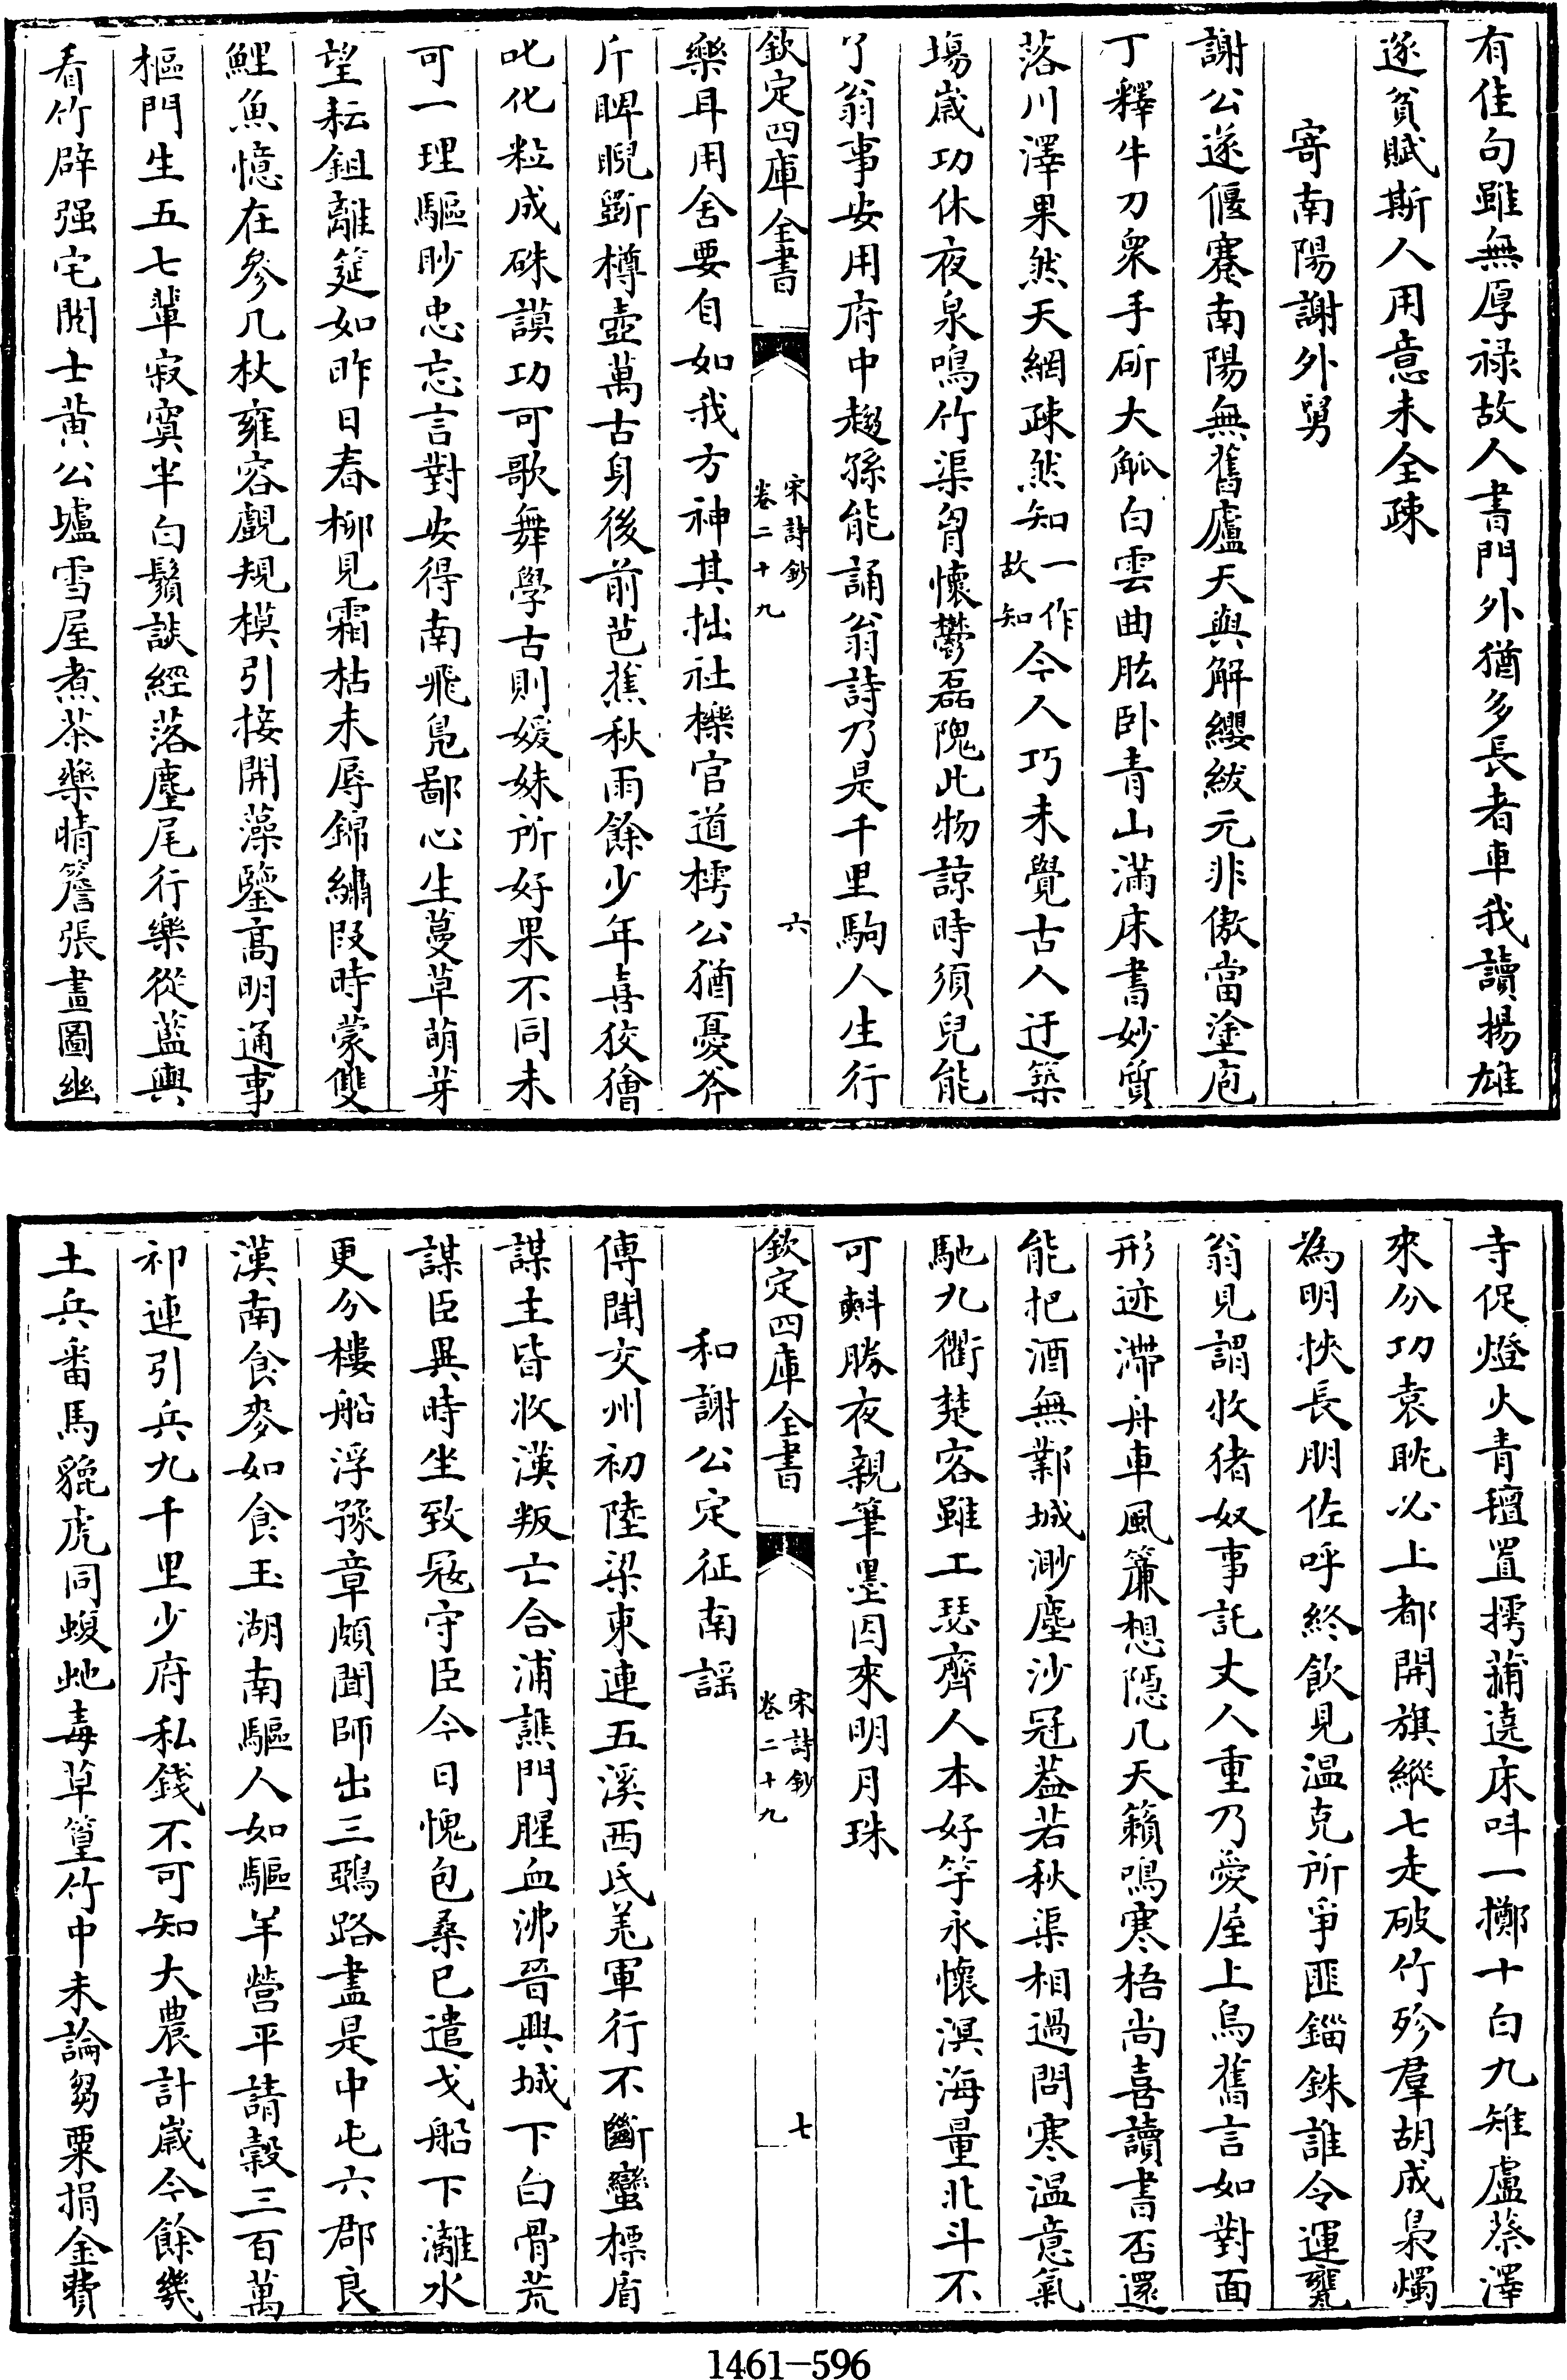 有佳句雖無厚祿故人書門外猶多長者車我讀揚雄
逐貧賦斯人用意未全疎
寄南陽謝外舅
謝公遂偃蹇南陽無舊廬天與解纓紱元非傲當塗庖
丁釋牛刀衆手斫大觚白雲曲肱卧青山滿床書妙質
落川澤果然天網疎然知一作故知今人巧未覺古人迂築
塲歲功休夜泉鳴竹渠胷懷鬱磊隗此物諒時須兒能
了翁事安用府中趨孫能誦翁詩乃是千里駒人生行
欽定四庫全書
宋詩鈔
卷二十九
六
樂耳用舍要自如我方神其拙社櫟官道樗公猶憂斧
斤睥睨斵樽壺萬古身後前芭蕉秋雨餘少年喜狡獪
叱化粒成硃謨功可歌舞學古則媛姝所好果不同未
可一理驅眇忠忘言對安得南飛鳧鄙心生蔓草萌芽
望耘鉏離筵如昨日春柳見霜枯未辱錦繡段時蒙雙
鯉魚憶在參几杖雍容覷規模引接開藻鑒高明通事
樞門生五七輩寂寞半白鬚談經落麈尾行樂從藍輿
看竹辟强宅閱士黃公壚雪屋煮茶藥晴簷張畫圖幽
寺促燈火青氊置摴蒱遶床呌一擲十白九雉盧蔡澤
來分功袁眺必上都開旗縱七走破竹殄羣胡成梟燭
為明挾長朋佐呼終飲見温克所爭匪錙銖誰令運甕
翁見謂牧猪奴事託丈人重乃愛屋上烏舊言如對面
形迹滯舟車風簾想隱几天籟鳴寒梧尚喜讀書否還
能把酒無鄴城渺塵沙冠葢若秋渠相過問寒温意氣
馳九衢楚客雖工瑟齊人本好竽永懷溟海量北斗不
可㪺勝夜親筆墨因來明月珠
欽定四庫全書
宋詩鈔
卷二十九
七
和謝公定征南謡
傳聞交州初陸梁東連五溪西氐羌軍行不斷蠻標盾
謀主皆收漢叛亡合浦譙門腥血沸晉興城下白骨荒
謀臣異時坐致冦守臣今日愧包桑已遣戈船下灕水
更分樓船浮豫章頗聞師出三鵶路盡是中屯六郡良
漢南食麥如食玉湖南驅人如驅羊營平請穀三百萬
祁連引兵九千里少府私錢不可知大農計歲今餘幾
土兵番馬貔虎同蝮虵毒草篁竹中未論芻粟捐金費
1461-596